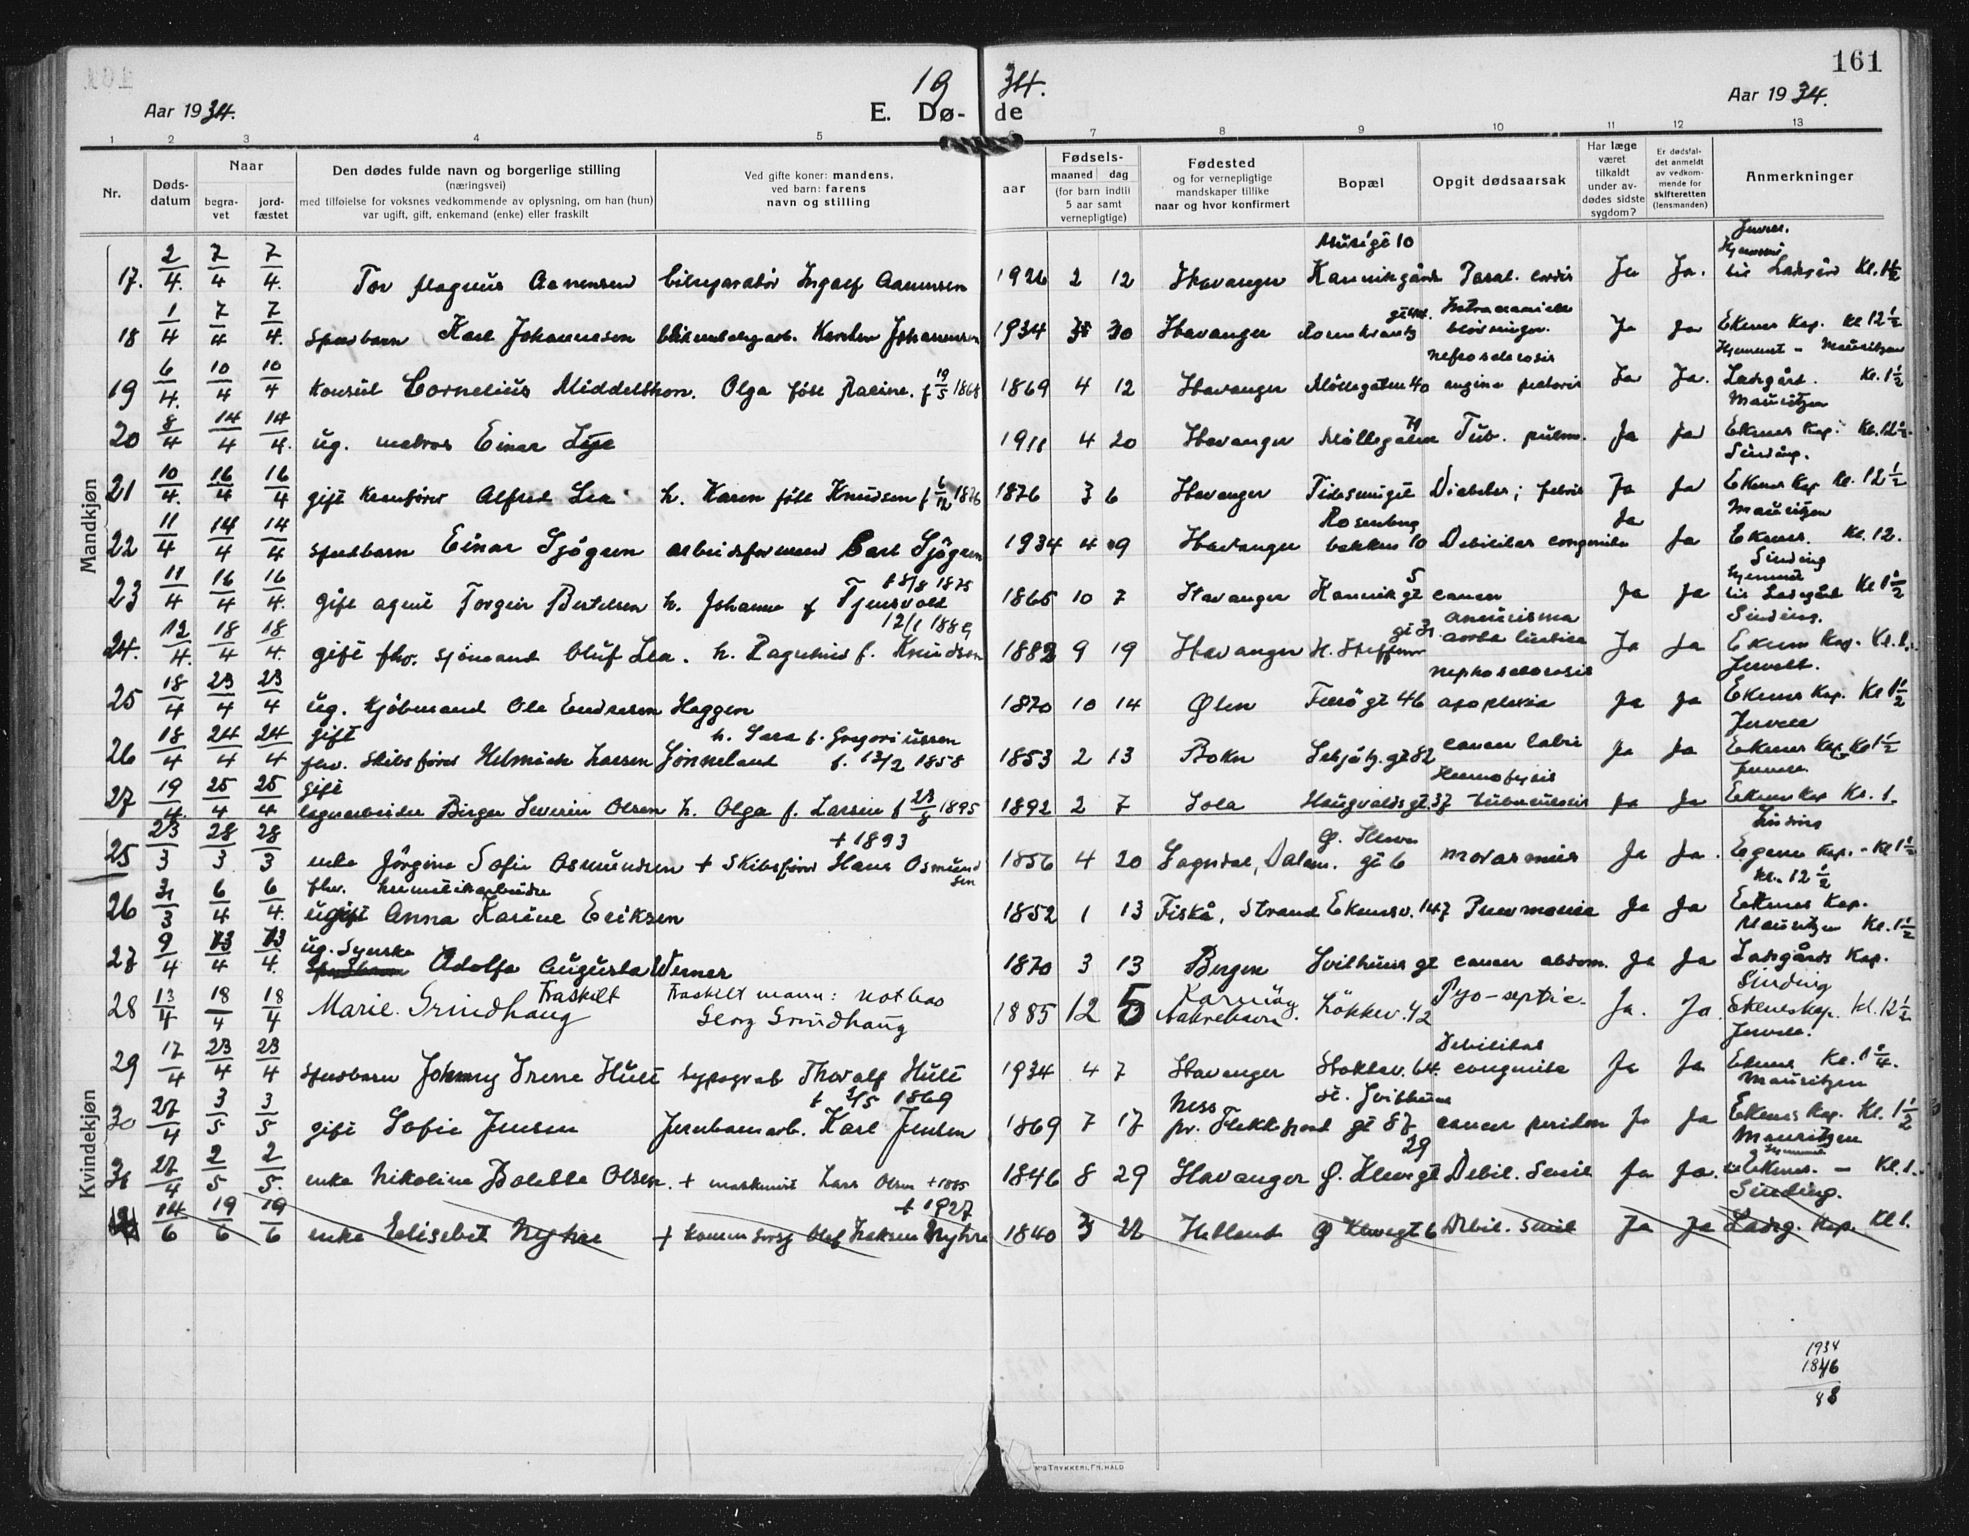 161
19 34.
Aar 1934.
E. Dø- de
Aar 1934.
1 2 3 4 5 6 7 8 9 10 11 12 13
Nr.
Døds-
datum
Naar
begra-
vet
jord-
fæstet
Den dødes fulde navn og borgerlige stilling
(næringsvei)
med tilføielse for voksnes vedkommende av oplysning, om han (hun)
var ugift, gift, enkemand (enke) eller fraskilt
Ved gifte koner: mandens,
ved barn: farens
navn og stilling
aar
Fødsels-
maaned dag
(for barn indtil
5 aar samt
vernepligtige)
Fødested
og for vernepligtige
mandskaper tillike
naar og hvor konfirmert
Bopæl
Opgit dødsaarsak
Har læge
været
tilkaldt
under av-
dødes sidste
sygdom?
Er dødsfal-
det anmeldt
av vedkom-
mende for
skifteretten
(lensmanden)
Anmerkninger
Mandkjøn
17. 2/4. 7/4 7/4. Tor Magnus Aanensen bilreparatør Ingolf Aanensen 1926 2 12 Stavanger Kannikgård Paral. cordis Ja Ja. Ladegård Kl. 1 1/2
18 1/4 7/4 7/4. Spedbarn Karl Johannesen Karsten Johannesen 1934 30 Stavanger Rosenkrantz Ja Ja Ekenes Kap. Kl 12 1/2
19 6/4. 10/4 10/4 Konsul Cornelius Middelthon. Olga født Racine. f 19/5 1868 1869 4 12 Stavanger Møllegaten 40 nefrosclerosis angina pectoris Ja Ja. Ladegård. Kl. 1 1/2
Mauritzen
20 8/4 14/4 14/4. ug. matros Einar Lye 1911 4 20 Stavanger Møllegaten Tub. pulm. Ja Ja Ekenes Kap. Kl. 12 1/2
21 10/4. 16/4 16/4 gift Alfred Lea h. Karen født Knudsen f 6/12 1876 1876 3 6 Stavanger Diabetes; Ja Ja Ekenes Kap Kl. 12 1/2
Mauritzen
22 11/4 14/4 14/4 spedbarn Einar Sjögren arbeidsformand Carl Sjögren 1934 4 9 Stavanger Rosenberg bakken 10 Debilitas congenita Ja Ja Ekenes. Kl. 12.
Sinding
23 11/4 16/4 16/4. gift agent Torgeir Bertelsen h. Johanne f Tjensvold 1865 10 7 Stavanger Kannik gt 5 cancer Ja Ja Ladegård Kl 1 1/2
Sinding.
24. 12/4. 18/4 18/4. gift fhv. sjømand Oluf Lea. h. Ragnhild f. Knudsen 12/1 1889 1882 9 19 Stavanger aneurisma aorta Ja Ja Ekenes Kap. Kl. 1.
25 18/4 23/4 23/4 ug. Kjöbmand Ole Endresen Heggen 1870 10 14 Ølen 46 nephosclerosis apoplexia Ja Ja Ekenes Kap. Kl 1 1/2
26 18/4 24/4 24/4 gift fhv. Skibsfører Helmich Larsen Jönneland h. Sara f. Gregoriussen f. 13/2 1858 1853 2 13 Bokn cancer labii Ja Ja Ekenes Kap Kl 1 1/2
27 19/4. 25/4 25/4 gift Birger Severin Olsen h. Olga f. Larsen 1895 1892 2 7 Sola Haugvaldsgt. 37 Hemoptysis tuberculosis Ja Ja Ekenes Kap Kl. 1.
Sinding
Kvindekjøn
25 23/3 28/3 28/3 enke Jörgine Sofie Osmundsen + Skibsfører Hans Osmundsen + 1893 1856 4 20 Sogndal, Dalane. gt 6 marasmus Ja Ja. Kap. - Kl 1 1/2
Kl. 12 1/2
26 31/3 6/4 6/4. fhv. hermetikarbeider ugift Anna Karine Eriksen 1852 1 13 Fiskå, Strand Ekenesv. 147 Pneumonia Ja Ja Ekenes Kap.
Mauritzen Kl. 1 1/2
27 9/4 13/4 13/4. ug. Syerske Adolfa Augusta Werner 1870 3 13 Bergen Svithuns gt cancer abdom. Ja Ja Ladegårds Kap.
Sinding
28 13/4 18/4 18/4 Marie Grindhaug Fraskilt Fraskilt mann: notbas Georg Grindhaug 1885 12 5 Karmöy Aakrehavn. Løkkev. 42 Pyo-septic. Ja. Ja. Ekenes Kap. Kl. 12 1/2
29 17/4 23/4 23/4 spedbarn Johnny Irene Hult typograf Thorolf Hult 1934 4 7 Stavanger Stokkav. 64. Debilitas congenita Ja Ja Ekenes Kl. 1 1/4.
Mauritzen
30 27/4 3/5 3/5 gift Sofie Jensen Jernbanearb. Karl Jensen f 2/5 1869 1869 7 17 Ness pr. Flekkefjord St. Svithuns gt 87 cancer Ja Ja Ekenes Kap. Kl. 1 1/2
Mauritzen
31 27/4 2/5 2/5. enke Nikoline Bolette Olsen. + maskinist Lars Olsen 1846 8 29 Stavanger Ø. Klevegt 29 Debil. senil Ja Ja. Ekenes. - Kl. 1.
Sinding.
14/6 19/6 19/6 enke Elisebet Nyhre + Olaf Nyhre + 1927 1840 3 22 Helland Ø Klevegt 6 Debil. senil Ja Ja Ladeg. Kap. Kl 1.
1934
1846
88
TRYKKERI, FR. HALD